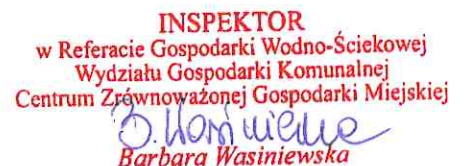 INSPEKTOR
w Referacie Gospodarki Wodno-Ściekowej
Wydziału Gospodarki Komunalnej
Centrum Zrównoważonej Gospodarki Miejskiej
Barbara Wasiniewska